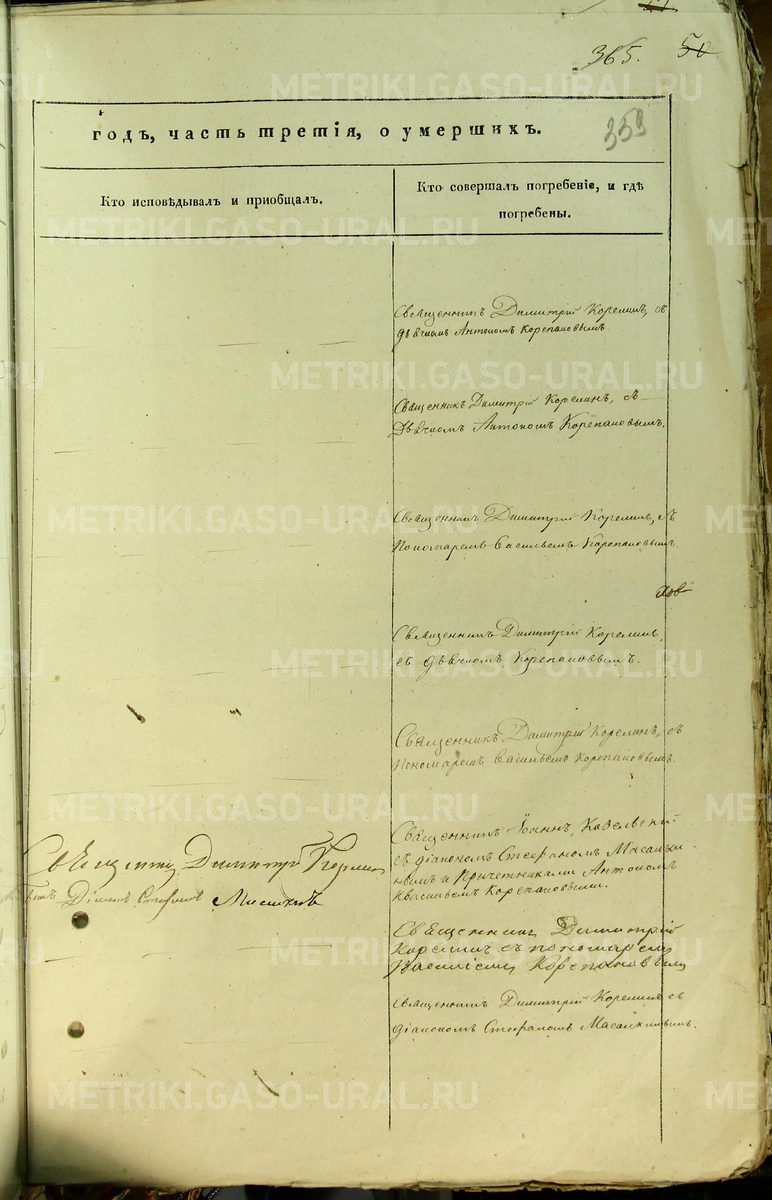 365. 50
359
годъ, часть третія, о умершихъ.
Кто исповѣдывалъ и приобщалъ.
Кто совершалъ погребеніе, и гдѣ
погребены.
Священникъ Димитрій Корелинъ, съ
дьячкомъ Антономъ Корепановымъ
Священникъ Димитрій Корелинъ, съ
Дьячкомъ Антономъ Корепановымъ.
Священникъ Димитрій Корелинъ, съ
Пономаремъ Васильемъ Корепановымъ
Священникъ Димитрій Корелинъ,
съ дьячкомъ Корепановымъ.
Священникъ Димитрій Корелинъ, съ
Пономаремъ Васильемъ Корепановымъ.
Священникъ Іоаннъ
съ діакономъ Стефаномъ Масалки-
нымъ и Причетниками Антономъ
Васильемъ Корепановыми.
Священникъ Димитрій Корелинъ
Діаконъ Стефанъ
Священникъ Димитрій
Корелинъ съ пономаремъ
Василіемъ Корепановымъ
Священникъ Димитрій Корелинъ съ
діакономъ Стефаномъ Масалкинымъ.
METRIKI.GASO-URAL.RU